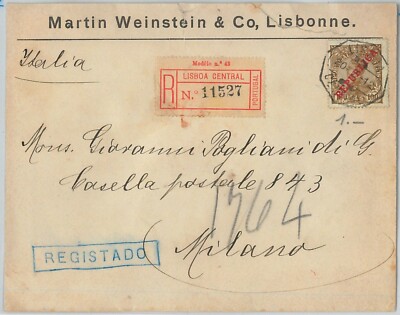 Martin Weinstein & Co, Lisbonne.
Italia
Modelo n.º 48
R
LISBOA CENTRAL
N.º 11527
PORTUGAL
REPUBLICA
1.—
Mons. Giovanni Pogliani di G.
Casella postale 843
1364
Milano
REGISTADO